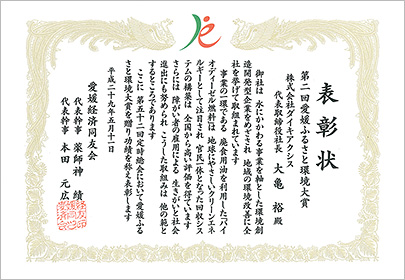 表彰状
第二回愛媛ふるさと環境大賞
株式会社ダイキアクシス
代表取締役社長 大亀 裕 殿
御社は 水にかかわる事業を軸とした環境創
造開発型企業をめざされ 地域の環境改善に全
社を挙げて取組まれています
事業の一環である 廃食用油を利用したバイ
オディーゼル燃料は 地球にやさしいクリーンエネ
ルギーとして注目され 官民一体となった回収シス
テムの構築は 全国から高い評価を得ています
さらには 障がい者の雇用による 生きがいと社会
進出にも努められ こうした取組みは 他の範と
するところであります
ここに 第五十二回定時総会において愛媛ふる
さと環境大賞を贈り功績を称え表彰します
平成二十九年五月十一日
愛媛経済同友会
代表幹事 薬師神 績
代表幹事 本田 元広